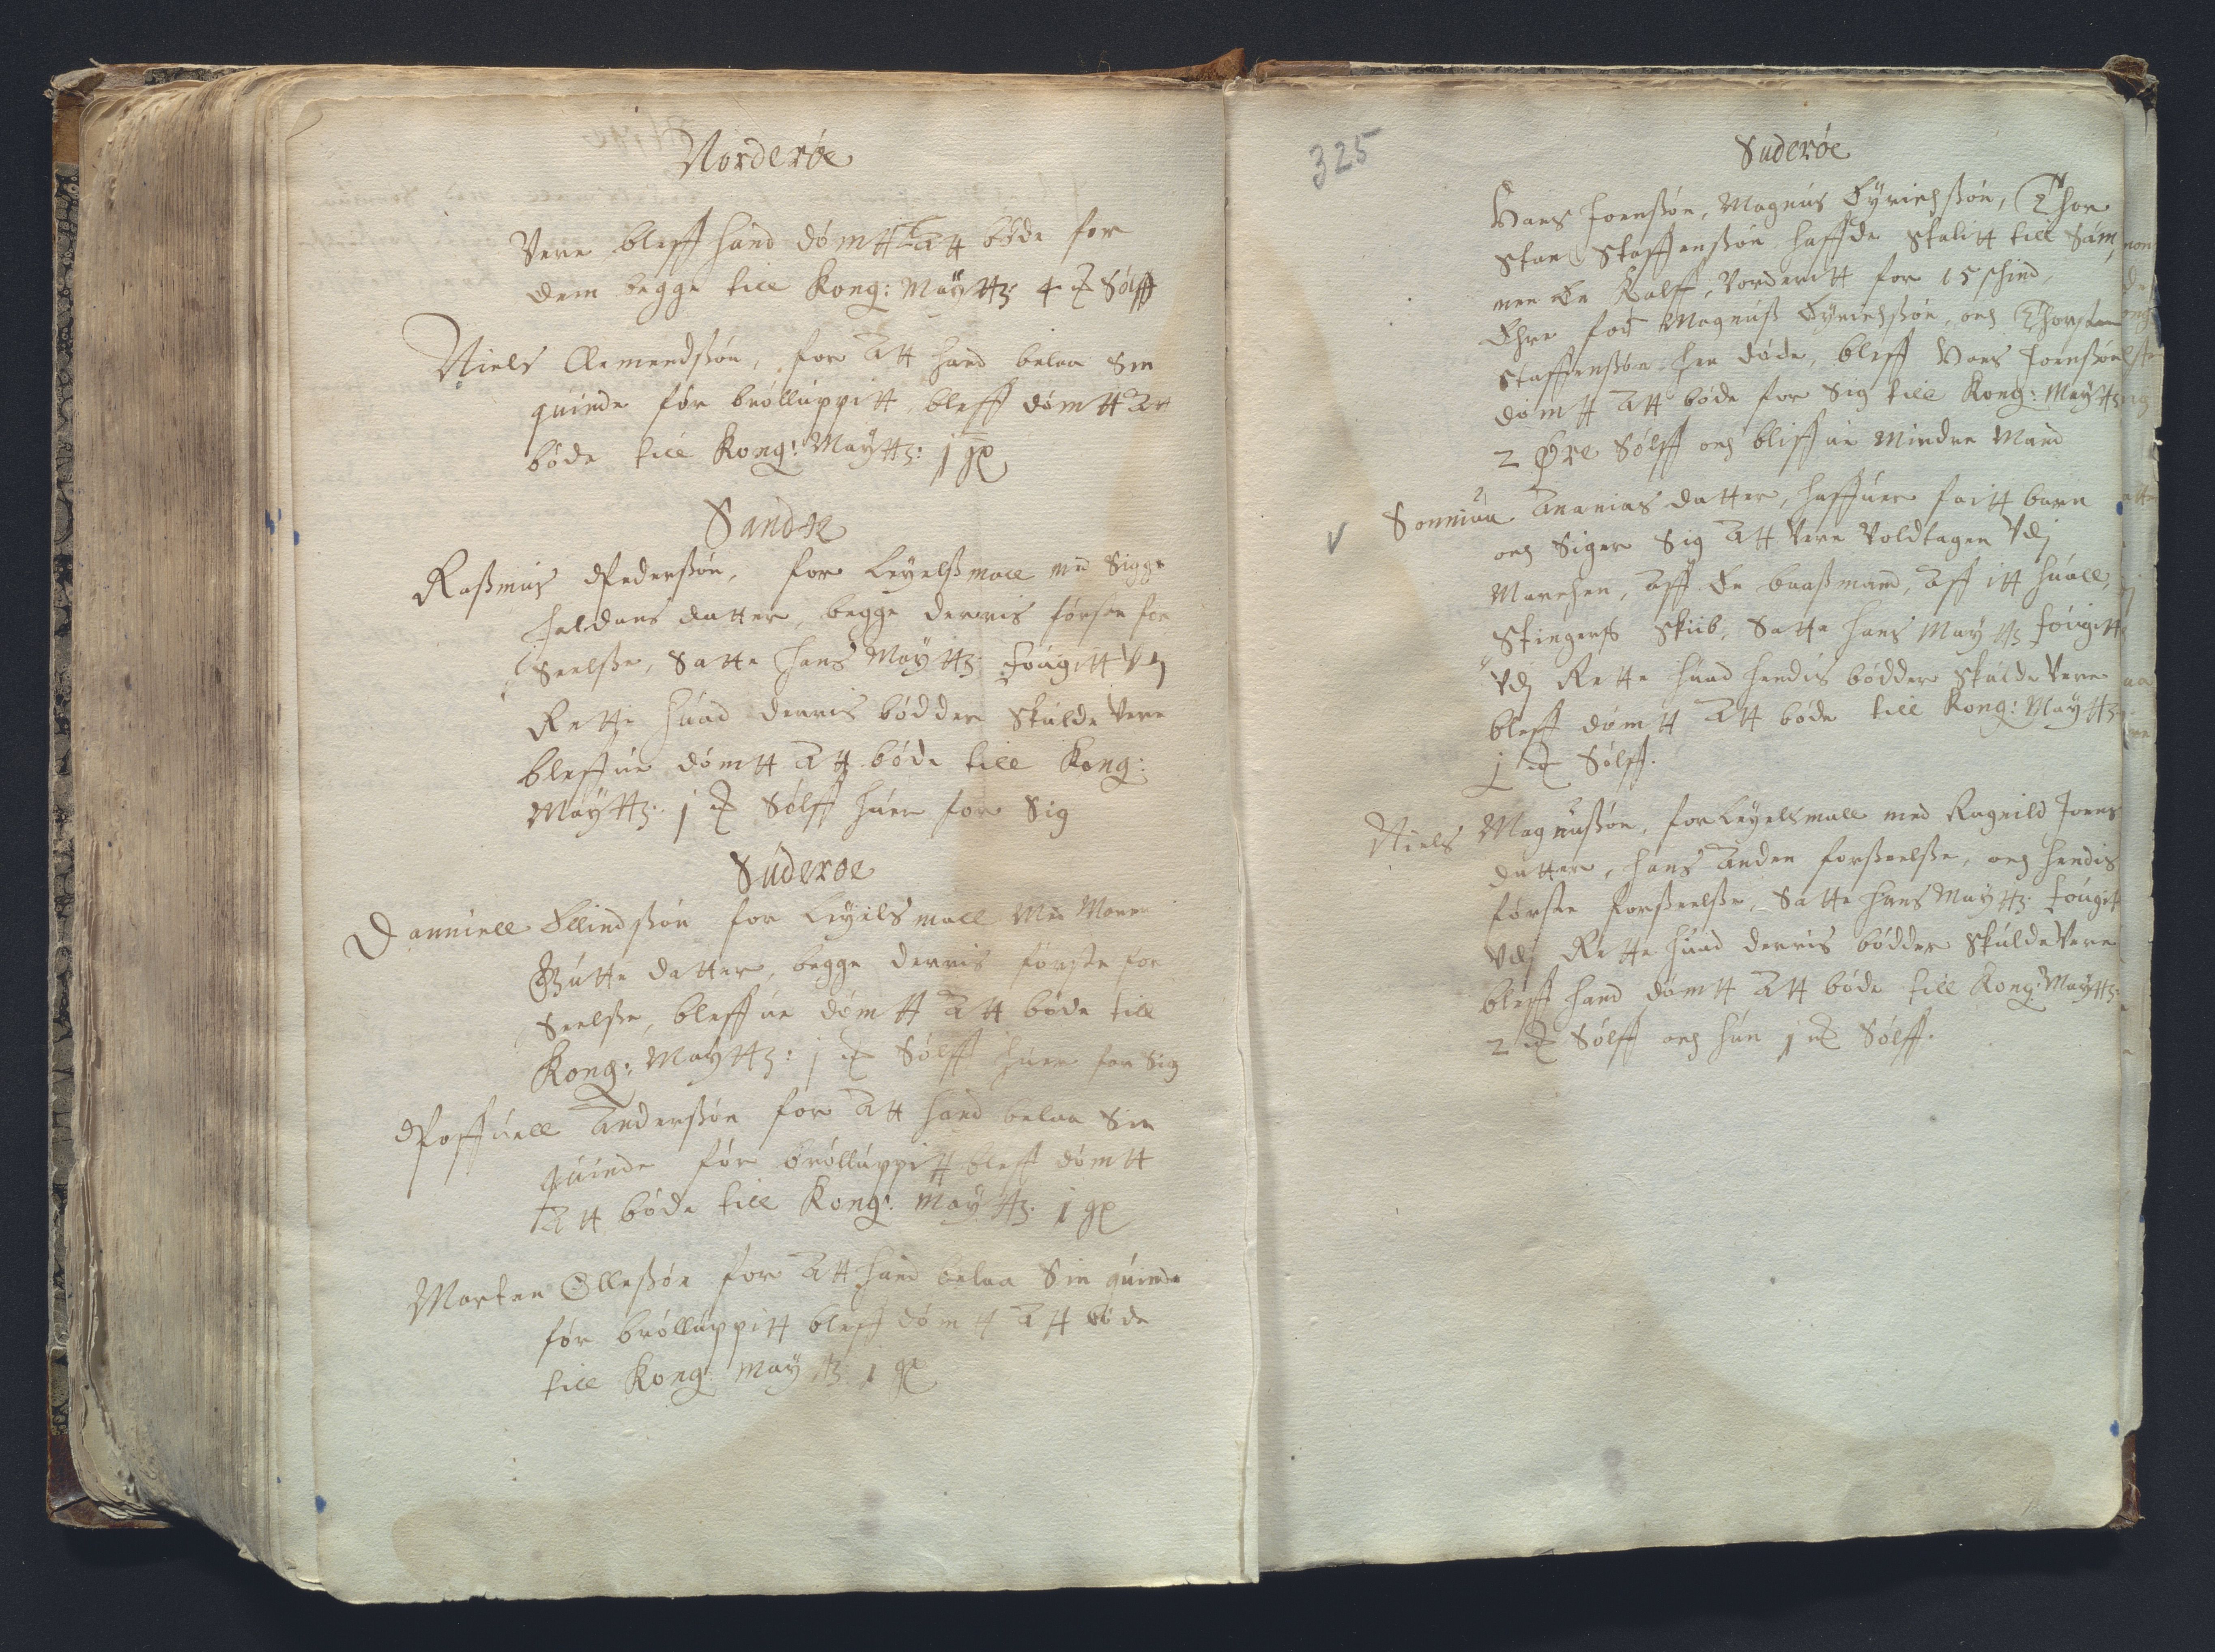 Norderøe
Vere bleff hand dømtt att bøde for
dem begge till Kong: Maÿttz 4 Sølff
Niels Clemendßøn, for att hand belaa Sin
quinde før brölluppitt, bleff dømtt att
bøde till Kong: Maÿttz: j gℓ
Sandø
Raßmus Pederßøn, for Leyelßmaall med Sigge
Haldans datter, begge derris første for
Seelße, Satte Hans Maÿttz: fougitt Vdj
Rette huad derris bødder Skulde Vere
bleffue dømtt att bøde till Kong:
Maÿttz: j Sølff huer for Sig
Suderøe
Danniell Ellindßøn for Leyelsmaall Med Maren
Gutte datter, begge derris første for
Seelße, bleffue dømtt att bøde till
Kong: Maÿttz: j Sølff huer for Sig
Poffuell Anderßøn for att hand belaa Sin
quinde før brölluppitt bleff dømtt
att bøde till Kong: Maÿttz: j gℓ
Morten Olleßøn for att hand belaa Sin quinde
før brölluppitt bleff dømtt att bøde
till Kong: Maÿttz: j gℓ
325
Suderøe
Hans Joenßøn, Magnus Eÿrichßøn, Thor
sten Staffenßøn haffde stalitt till Sam
men En Kalff, Vorderitt for 15 schind,
Ehre foꝛ Magnuß Eÿrichßøn, och Thorsten
Staffenßøn hen døde, bleff Hans Joenßøn
dømtt att bøde for Sig till Kong: Maÿttz
2 Øre Sølff och bliffue Mindre Mand
Sonniua Ananias datter, haffuer faitt barn
och Siger Sig att Vere Voldtagen Vdj
Marchen, aff En baaßmand, aff itt huall,
Stingers Skiib, Satte Hans Maÿttz fougitt
Vdj Rette huad hendis bødder Skulde Vere
bleff dømtt att bøde till Kong: Maÿttz
j Sølff.
Niels Magnußøn, for Leyelsmall med Ragnild Joens
datter, hans anden forßeelße, och hendis
første forßeelße, Satte Hans Maÿttz: fougitt
Vdj Rette huad derris bødder Skulde Vere
bleff hand dømtt att bøde till Kong: Maÿttz:
2 Sølff och hun j Sølff.